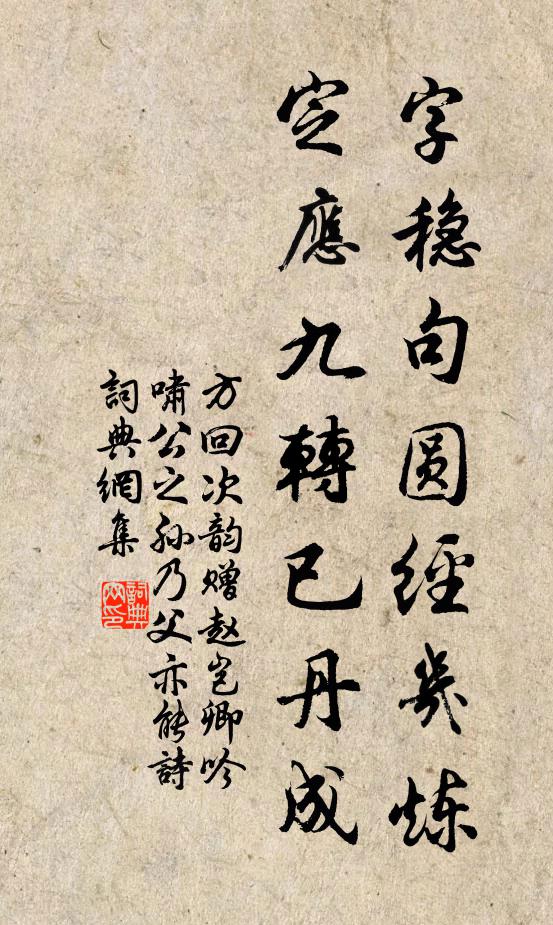 字稳句圆經幾炼
定應九轉已丹成
方回次韵赠赵岂卿吟
啸公之孙乃父亦能詩
詞典網集
詞典
网印